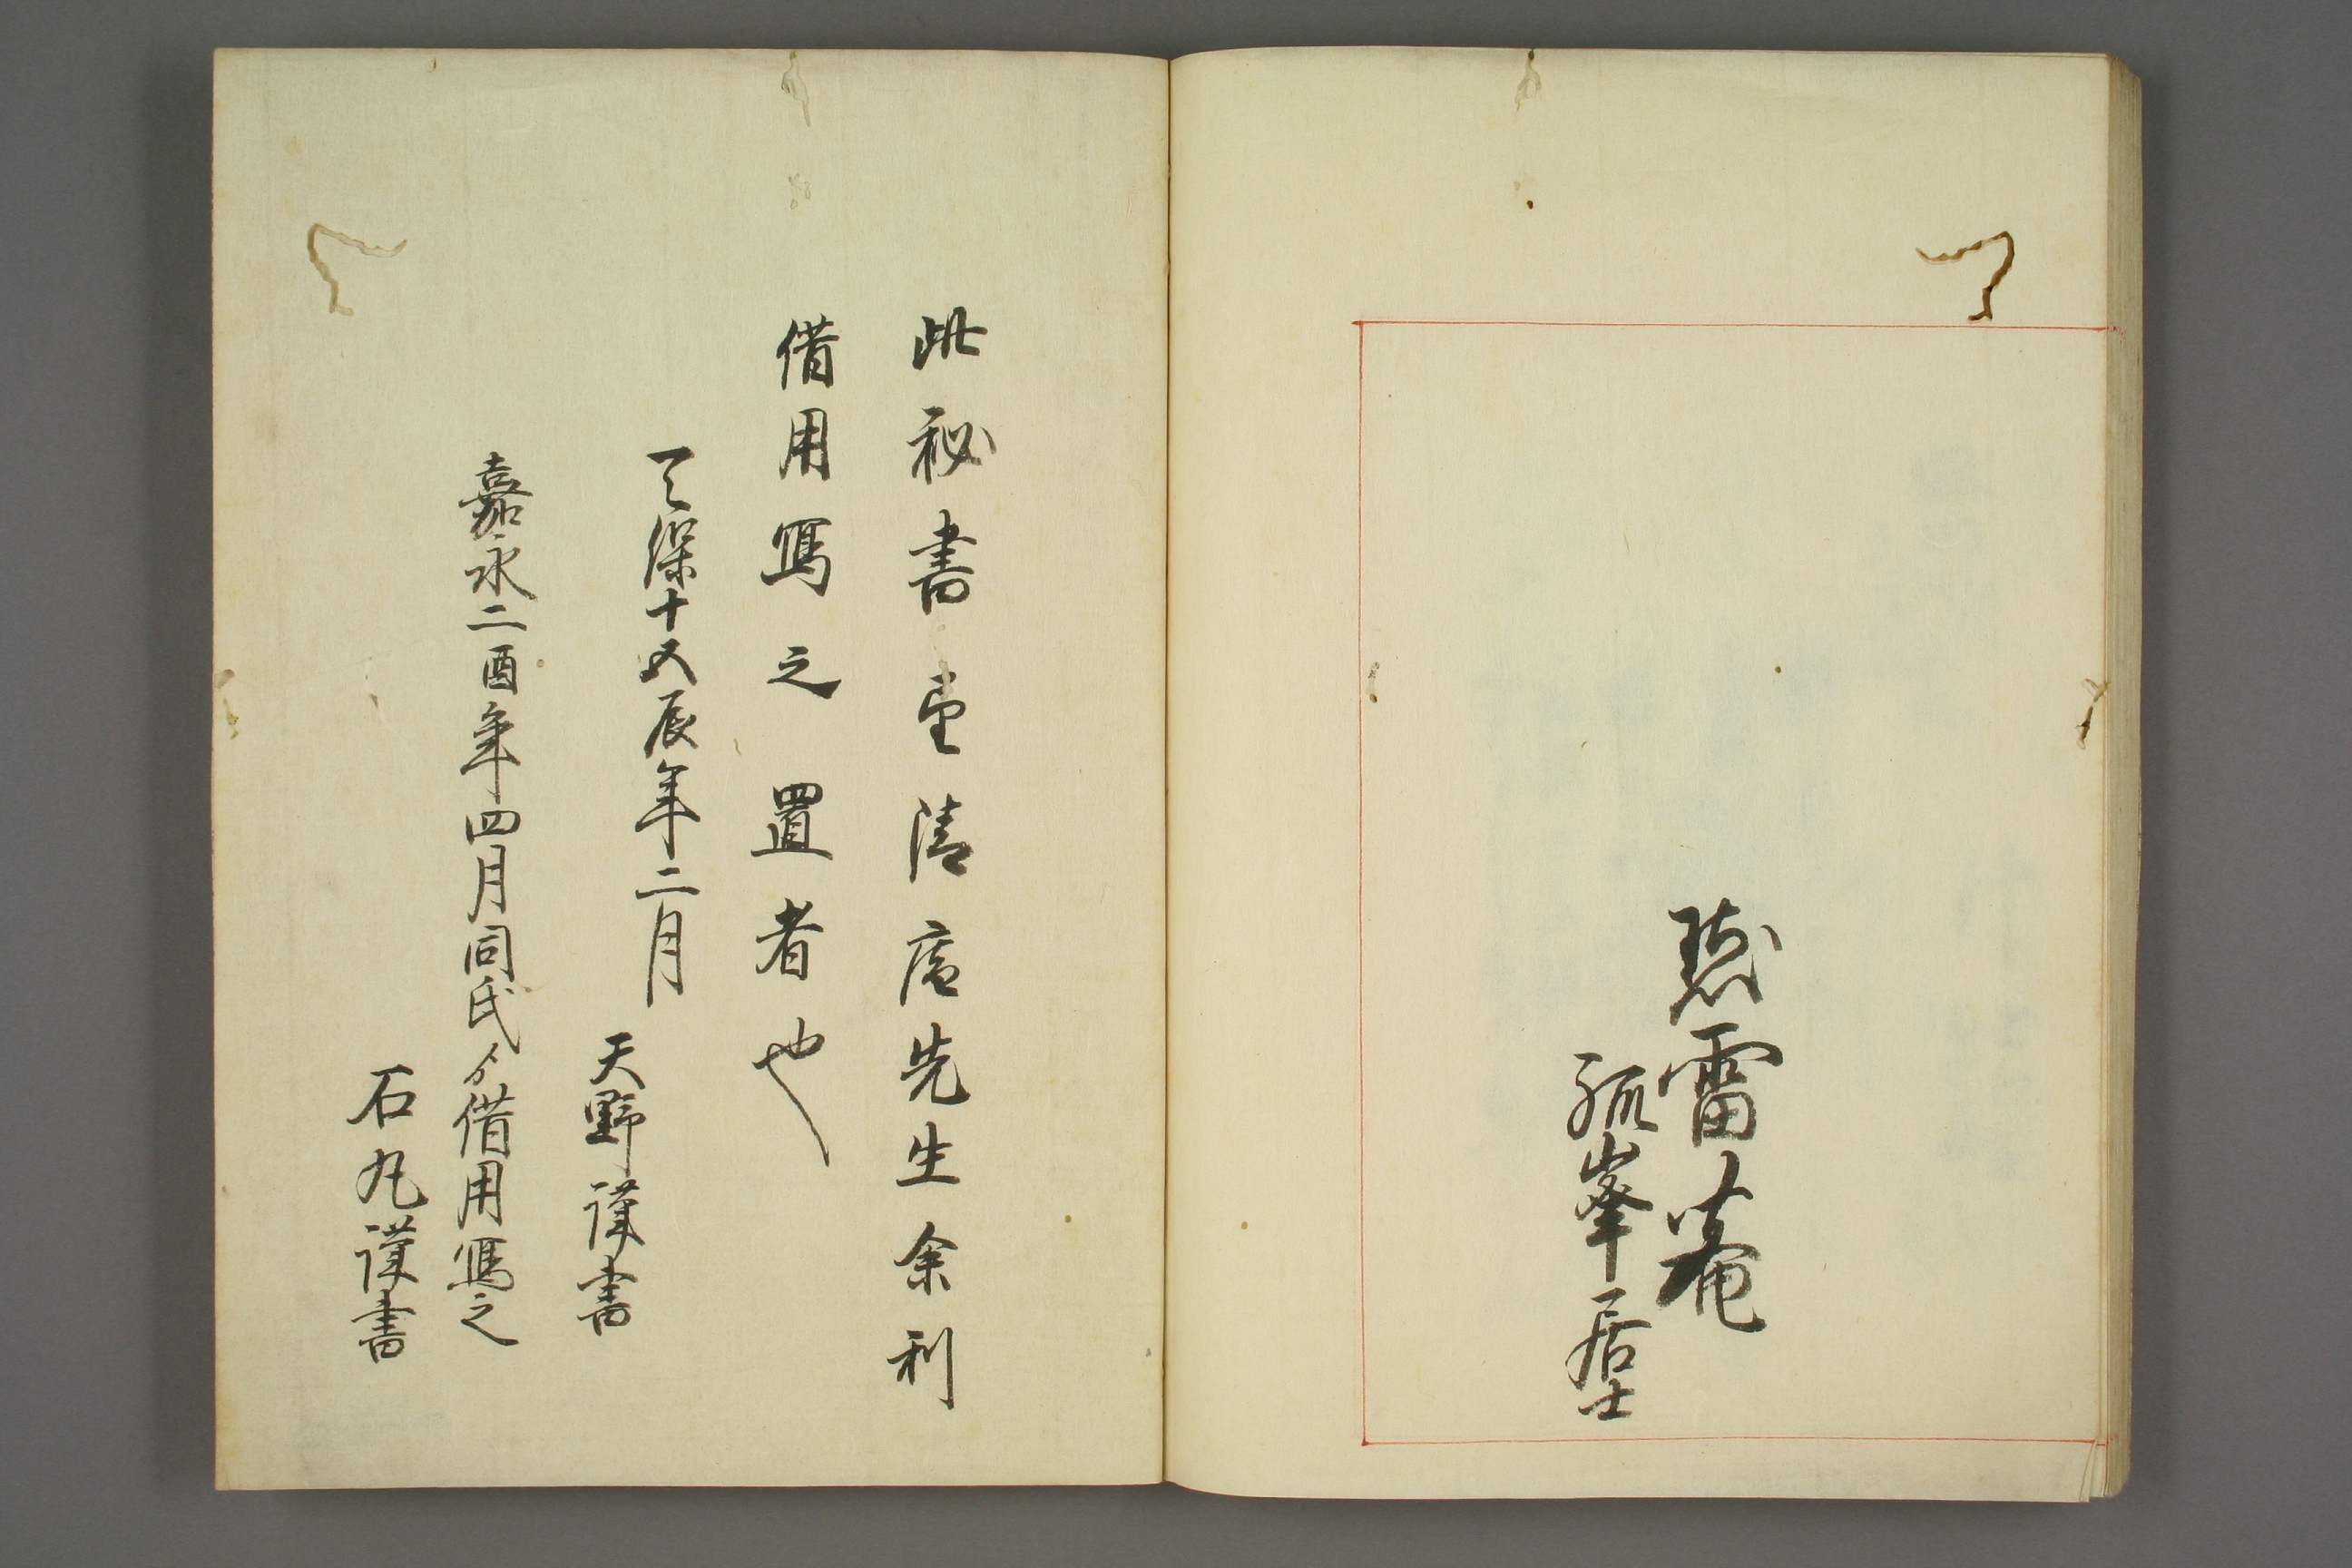 聴雷菴
孤峯居士
此秘書清庵先生余利
借用寫之置者也
天保十五辰年二月
天野謹書
嘉永二酉年四月同氏ゟ借用寫之
石丸謹書